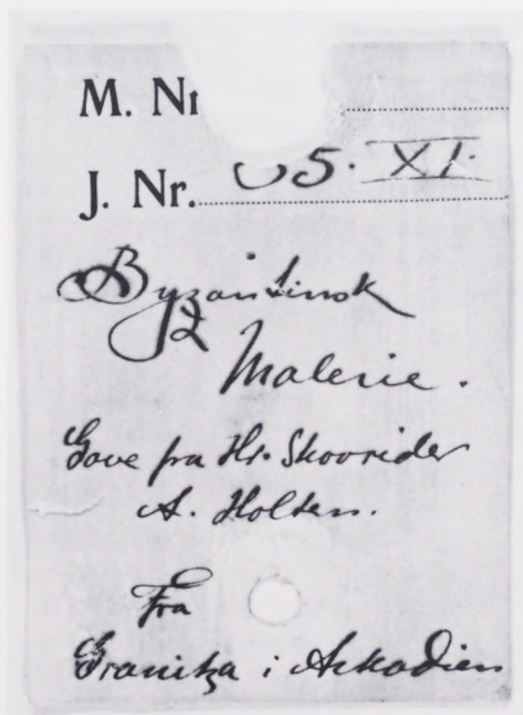 M. Nr
J. Nr. 65. XI.
Byzantinsk
Malerie.
Gave fra Hr. Skovrider
A. Holten.
Fra
Granitza i Arkadien